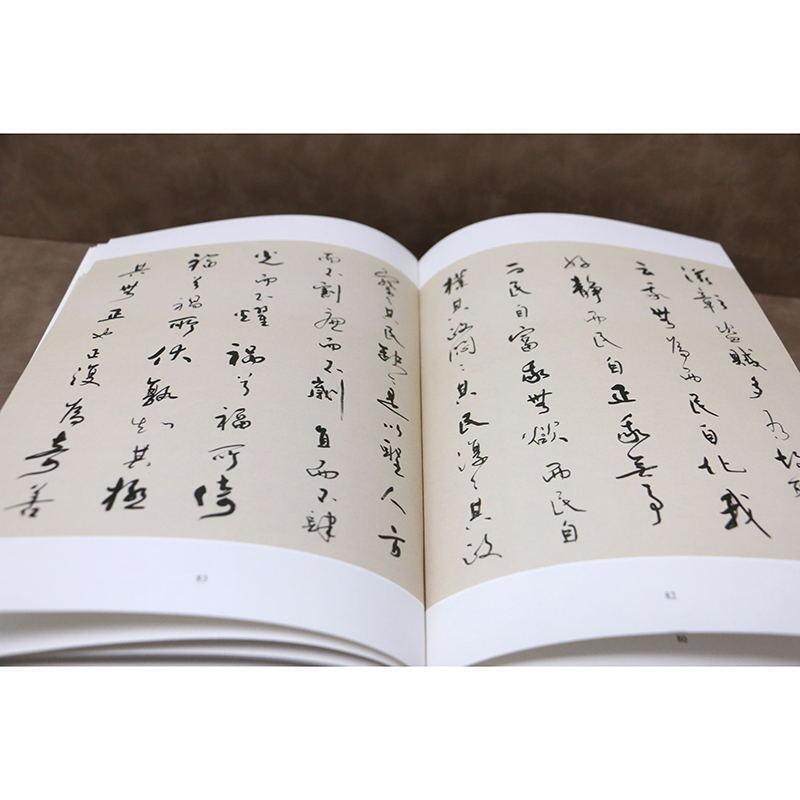 滋彰盜賊多有故聖
云我無為而民自化我
好靜而民自正我無事
而民自富我無欲而民自
樸其政悶〻其民淳〻其政
察〻其民缺〻是以聖人方
而不割廉而不劌直而不肆
光而不耀禍兮福所倚
福兮禍所伏孰知其極
其無正也正復為奇善
83
82
80